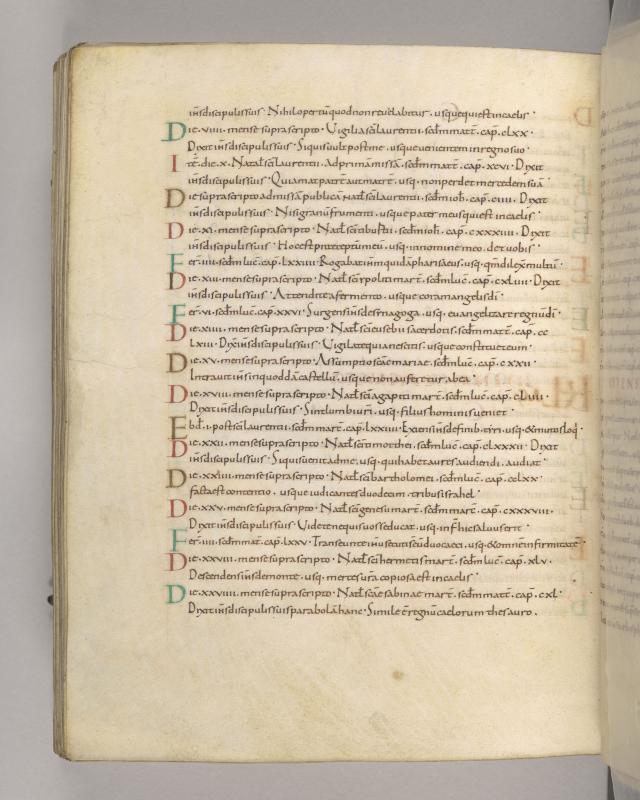 ihs discipulis suis · Nihil opertū quod non revelabitur · usque qui est in caelis ·
Die · viiii · mense suprascripto · Vigilia sc̄i laurentii · scd̄m matt̄ · cap̄ · clxx ·
Dixit ihs discipulis suis · Si quis vult post me · usque venientem in regno suo ·
Itē · die · x · Natal̄ sc̄i laurentii · ad primā missā · scd̄m matt̄ · cap̄ · xcvi · Dixit
ihs discipulis suis · Qui amat patrē aut matrē · usq· non perdet mercedem suā
Die suprascripto ad missā publicā natl̄ sc̄i laurentii · scd̄m ioh̄ · cap̄ · ciiii · Dixit
ihs discipulis suis · Nisi granū frumenti · usque pater meus qui est in caelis
Die · xi · mense suprascripto · Natl̄ sc̄i tiburtii · scd̄m ioh̄ · cap̄ · cxxxviiii · Dixit
ihs discipulis suis · Hoc est praeceptū meū · usq· in nomine meo · det vobis ·
Fer̄ · iiii · scd̄m luc̄ · cap̄ · lxxiiii · Rogabat ihm quidā pharisaeus · usq· qm̄ dilexit multū ·
Die · xiii · mense suprascripto · Natl̄ sc̄i ypoliti mart̄ · scd̄m luc̄ · cap̄ · cxliiii · Dixit
ihs discipulis suis · Attendite a fermento · usque coram angelis dī ·
Fer̄ · vi · scd̄m luc̄ · cap̄ · xxvi · Surgens ihs de synagoga · usq· evangelizare regnū dī ·
Die · xiiii · mense suprascripto · Natl̄ sc̄i eusebii sacerdotis · scd̄m matt̄ · cap̄ · cc
lxiii · Dix̄ ihs discipulis suis · Vigilate quia nescitis · usque constituet eum ·
Die · xv · mense suprascripto · Assumptio sc̄ae mariae · scd̄m luc̄ · cap̄ · cxxii ·
Intravit ihs in quoddā castellū · usque non auferetur ab ea ·
Die · xviii · mense suprascripto · Natl̄ sc̄i agapiti mart̄ · scd̄m luc̄ · cap̄ · cliiii ·
Dixit ihs discipulis suis · Sint lumbi vr̄i · usq· filius hominis veniet ·
Ebd̄ · i · post sc̄i laurentii · scd̄m marc̄ · cap̄ · lxxiiii · Exiens ihs de finib· tyri · usq· & mutos loq̄ ·
Die · xxii · mense suprascripto · Natl̄ sc̄i timothei · scd̄m luc̄ · cap̄ · clxxxii · Dixit
ihs discipulis suis · Si quis venit ad me · usq· qui habet aures audiendi · audiat ·
Die · xxiiii · mense suprascripto · Natl̄ sc̄i bartholomei · scd̄m luc̄ · cap̄ · cclxx ·
facta est contentio · usque iudicantes duodecim · tribus israhel ·
Die · xxv · mense suprascripto · Natl̄ sc̄i genesii mart̄ · cap̄ · cxxxviii ·
Dixit ihs discipulis suis · Videte ne quis vos seducat · usq· in fīne salvus erit ·
Fer̄ · iiii · scd̄m matt̄ · cap̄ · lxxv · Transeunte ihu secuti sē duo caeci · usq· & omnē infirmitatē ·
Die · xxviii · mense suprascripto · Natl̄ sc̄i hermetis mart̄ · scd̄m luc̄ · cap̄ · xlv ·
Descendens ihs de monte · usq· merces vr̄a copiosa est in caelis ·
Die · xxviiii · mense suprascripto · Natl̄ sc̄ae sabinae mart̄ · scd̄m matt̄ · cap̄ · cxl ·
Dixit ihs discipulis suis parabolā hanc · Simile ē regnū caelorum thesauro ·